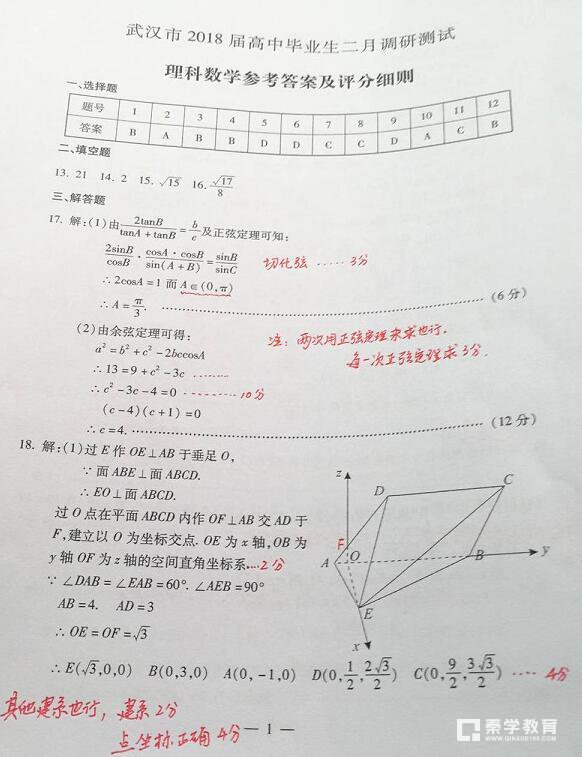 武汉市 2018 届高中毕业生二月调研测试
理科数学参考答案及评分细则
一、选择题
题号 1 2 3 4 5 6 7 8 9 10 11 12
答案 B A B B D D C C D A C B
二、填空题
13. 21 14. 2 15. √15 16. √17/8
三、解答题
17. 解:(1)由 2tanB/(tanA+tanB) = b/c 及正弦定理可知:
2sinB/cosB · cosA·cosB/sin(A+B) = sinB/sinC 切化弦 ..... 3分
∴ 2cosA=1 而 A∈(0,π)
∴ A=π/3. ………… (6分)
(2)由余弦定理可得: 注:两次用正弦定理来求也行.
a²=b²+c²-2bccosA 每一次正弦定理求3分.
∴ 13=9+c²-3c ........
∴ c²-3c-4=0 ......... 10分
(c-4)(c+1)=0
∴ c=4. ………… (12分)
18. 解:(1)过 E 作 OE⊥AB 于垂足 O,
∵ 面 ABE⊥面 ABCD.
∴ EO⊥面 ABCD.
过 O 点在平面 ABCD 内作 OF⊥AB 交 AD 于
F,建立以 O 为坐标交点. OE 为 x 轴,OB 为
y 轴 OF 为 z 轴的空间直角坐标系 ....2分
∵ ∠DAB=∠EAB=60°. ∠AEB=90°
AB=4. AD=3
∴ OE=OF=√3
z
D
C
F
A
O
B
y
E
x
∴ E(√3,0,0) B(0,3,0) A(0,-1,0) D(0,1/2,2√3/2) C(0,9/2,3√3/2) .... 4分
其他建系也行,建系2分
点坐标正确4分
— 1 —
秦学教育
WWW.QINXUE100.COM